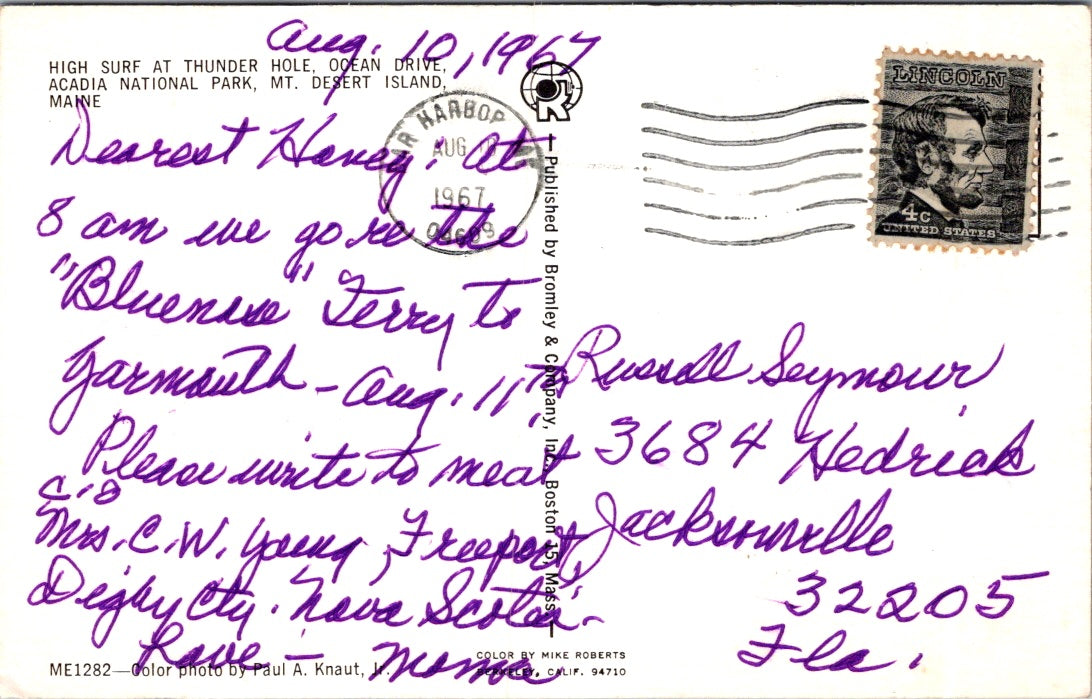 Aug. 10, 1967
HIGH SURF AT THUNDER HOLE, OCEAN DRIVE,
ACADIA NATIONAL PARK, MT. DESERT ISLAND,
MAINE
BAR HARBOR
AUG
1967
04609
LINCOLN
4c
UNITED STATES
Dearest Honey: At
8 am we go on the
"Bluenose" Ferry to
Yarmouth - Aug. 11th,
Please write to me at
c/o
Mrs. C. W. Young, Freeport,
Digby Cty. Nova Scotia -
Love - Mama
Published by Bromley & Company, Inc., Boston 15, Mass.
Russell Seymour
3684 Hedrick
Jacksonville
32205
Fla.
ME1282—Color photo by Paul A. Knaut, Jr.
COLOR BY MIKE ROBERTS
BERKELEY, CALIF. 94710